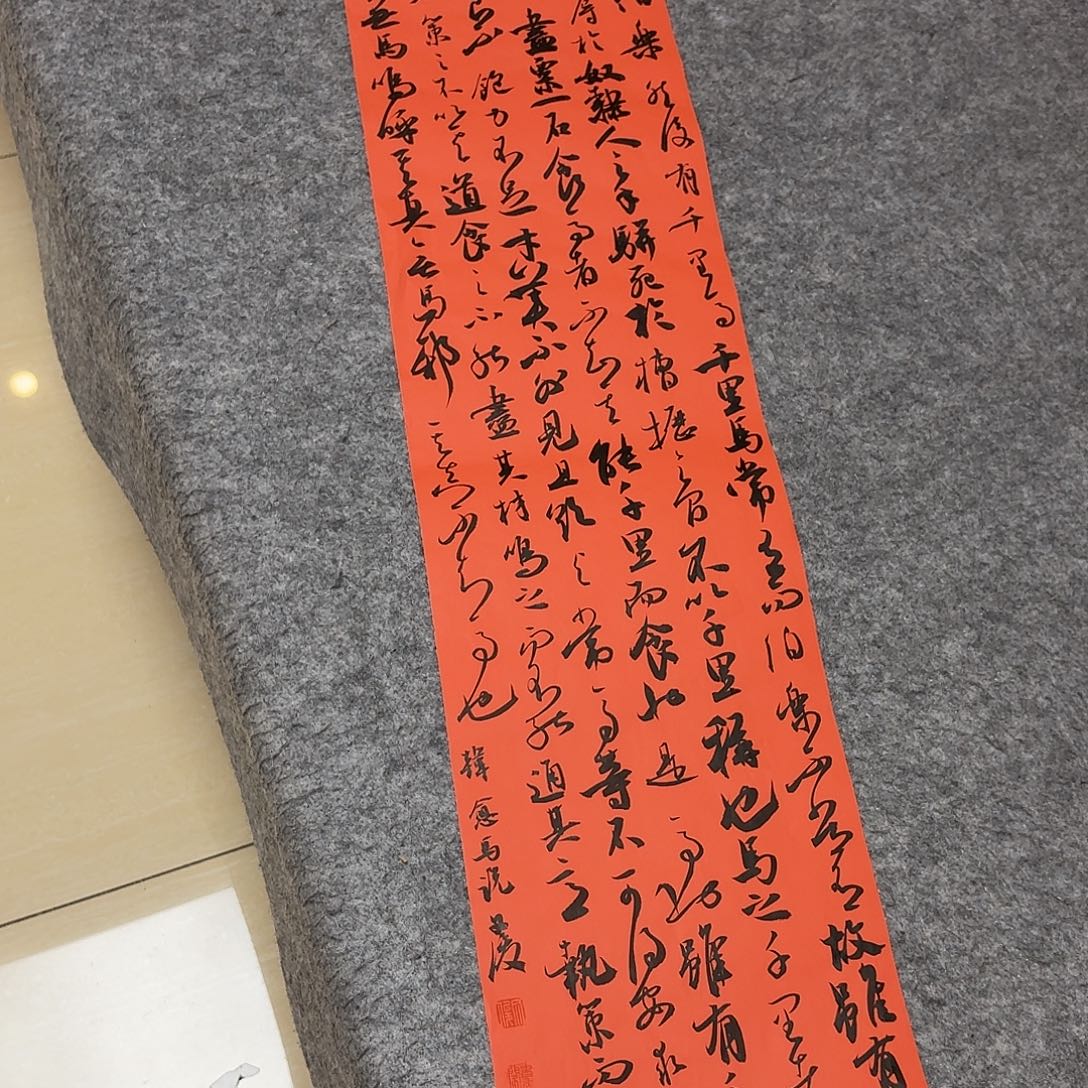 樂然後有千里馬千里馬常有而伯樂不常有故雖有
辱於奴隸人之手駢死於槽櫪之間不以千里稱也馬之千里者
盡粟一石食馬者不知其能千里而食也是馬也雖有
飽力不足才美不外見且欲與常馬等不可得安求
策之不以其道食之不能盡其材鳴之而不能通其意執策而
無馬嗚呼其真無馬邪其真不知馬也
韓愈馬說